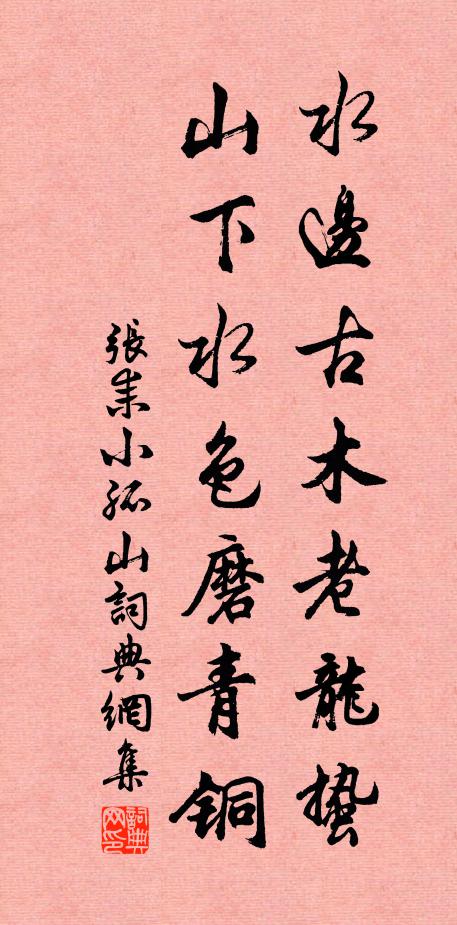 水邊古木老龍蟄
山下水色磨青銅
張耒小孤山詞典網集
詞典网印